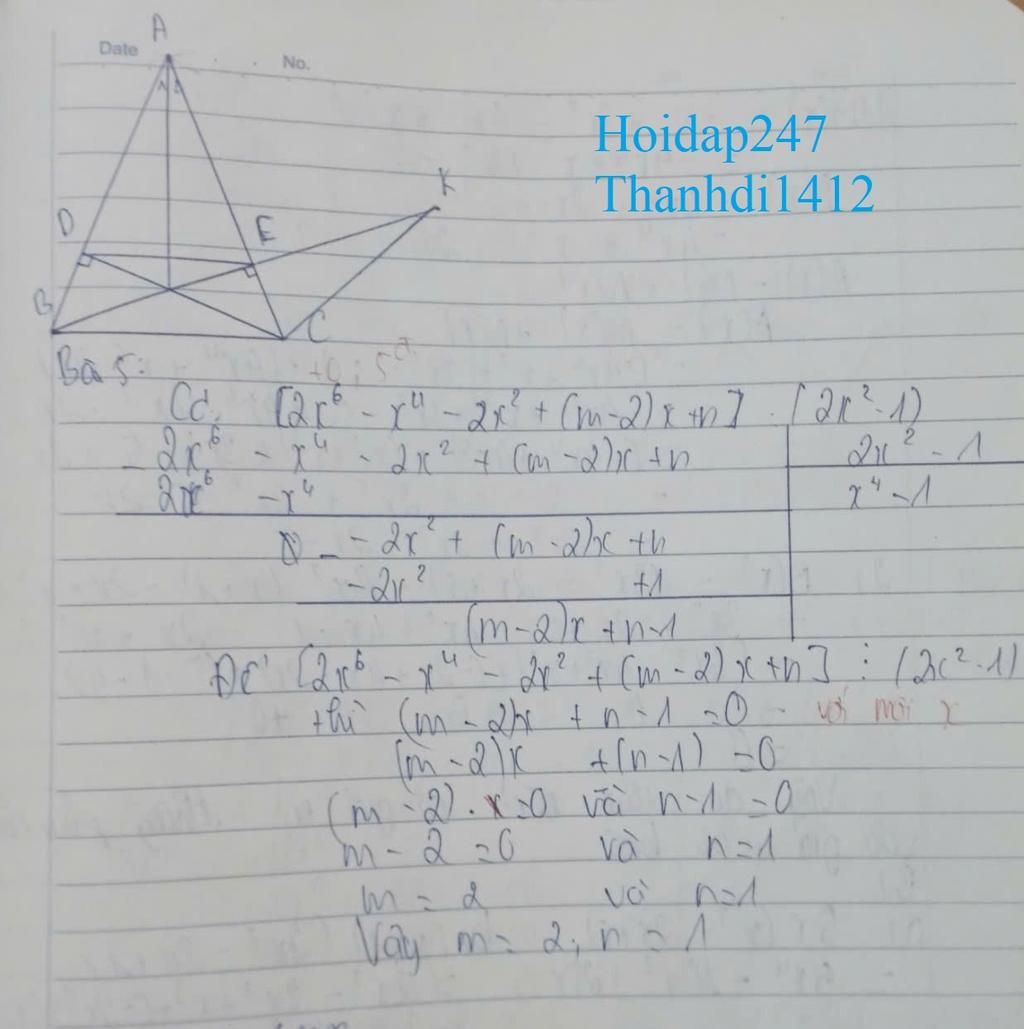 Date No.
A
Hoidap247
Thanhdi1412
K
D
E
B
C
Bài 5: +0,5đ
Có [2x⁶ - x⁴ - 2x² + (m-2)x + n] : (2x² - 1)
- 2x⁶ - x⁴ - 2x² + (m-2)x + n | 2x² - 1
2x⁶ - x⁴ | x⁴ - 1
0 - -2x² + (m-2)x + n
-2x² +1
(m-2)x + n-1
Để [2x⁶ - x⁴ - 2x² + (m-2)x + n] ⋮ (2x² - 1)
thì (m-2)x + n-1 = 0 với mọi x
(m-2)x + (n-1) = 0
(m-2).x=0 và n-1=0
m-2=0 và n=1
m = 2 và n=1
Vậy m = 2, n = 1